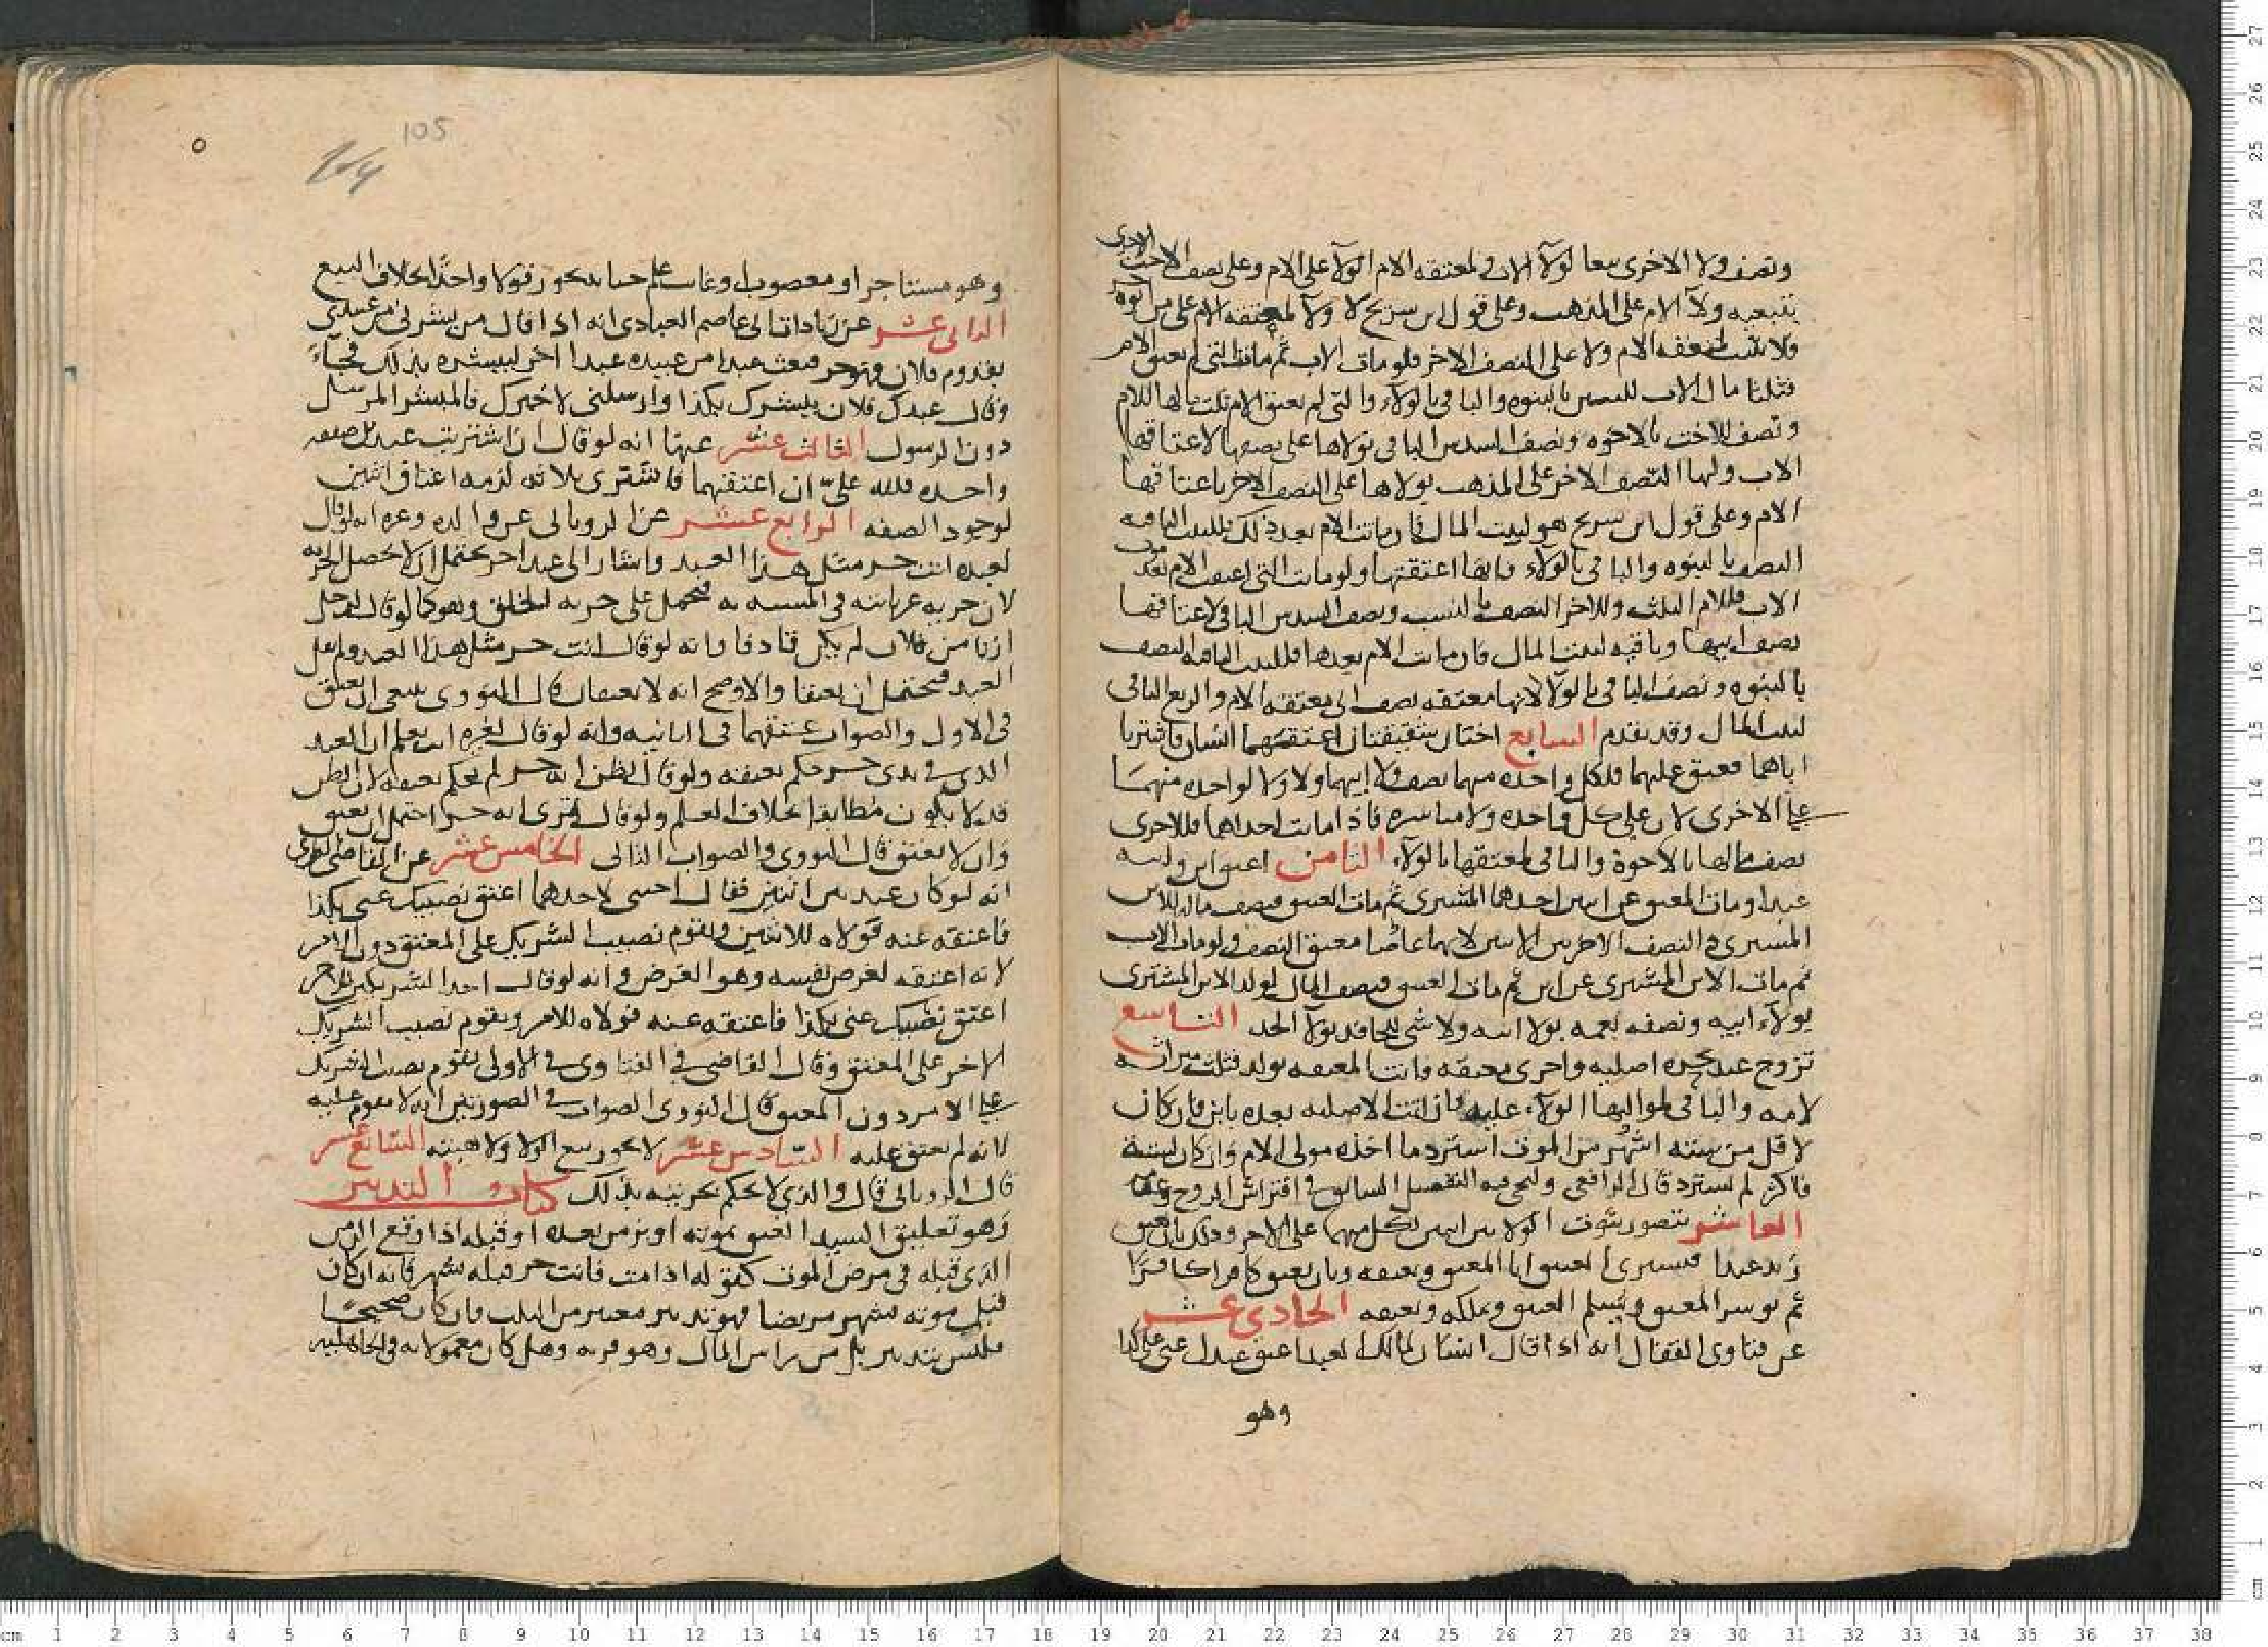 ونصف ولا الاخرى تبعا لولآ الاب ولمعتقه الام الولآ على الام وعلى نصف الاخت الاخرى
بتبعيه ولآ الام على المذهب وعلى قول ابن سريج لا ولآ لمعتقه الام على من ابوه
فلا يثبت لمعتقه الام ولا على النصف الاخر فلو مات الاب ثم ماتت التى لم تعتق الام
فثلثا مال الاب للبنتين بالبنوه والباقى بالولاء والتى لم تعتق الام ثلث مالها للام
ونصف للاخت بالاخوه ونصف السدس الباقى بولاها على نصفها لاعتاقها
الاب ولهما النصف الاخر على المذهب بولاها على النصف الاخر باعتاقها
الام وعلى قول ابن سريج هو لبيت المال فان ماتت الام بعد ذلك فللبنت الباقيه
النصف بالبنوه والباقى بالولاء فانها اعتقتها ولو ماتت التى اعتقت الام بعد موت
الاب فللام الثلث وللاخر النصف بالنسب ونصف السدس الباقى لاعتاقها
نصف ابيها وباقيه لبيت المال فان ماتت الام بعدها فللبنت الباقيه النصف
بالبنوه ونصف الباقى بالولآ لانها معتقه نصف ابى معتقه الام والربع الباقى
لبيت المال وقد تقدم السابع اختان شقيقتان اعتقتهما انسان فاشتريا
اباهما فعتق عليهما فلكل واحده منهما نصف ولا ابيهما ولا ولا لواحده منهما
على الاخرى لان على كل واحده ولا مباشره فاذا ماتت احداهما فللاخرى
نصف مالها بالاخوة والباقى لمعتقها بالولآء الثامن اعتق ابن وابنه
عبدا ومات المعتق عن ابنين احدهما المشترى ثم مات العتيق فنصف ماله للابن
المشترى والنصف الاخر بين الابنين لانهما عاصبا معتق النصف ولو مات الاب
ثم مات الابن المشترى عن ابن ثم مات العتيق فنصف المال لولد الابن المشترى
بولآء ابيه ونصفه لعمه بولا ابيه ولا شى للحافد بولآ الجد التاسع
تزوج عبد بحره اصليه واخرى معتقه فاتت المعتقه بولد فثلث ميراثه
لامه والباقى لمواليها الولآء عليه فان اتت الاصليه بعده بابن فان كان
لاقل من سته اشهر من الموت استرد ما اخذه مولى الام وان كان لسته
فاكثر لم يسترد قال الرافعى وليجى فيه التفصيل السابق فى افتراش الزوج وعدمه
العاشر يتصور ثبوت الولا بين اثنين لكل منهما على الاخر وذلك بان يعتق
زيد عبدا فيشترى العتيق ابا المعتق ويعتقه وبان يعتق كافرا كافرا
ثم يوسر المعتق ويسلم العتيق ويملكه ويعتقه الحادى عشر
عن فتاوى القفال انه اذا قال انسان لمالك العبد اعتق عبدك عنى على كذا
وهو
105
وهو مستاجر او مغصوب او غائب علم حياته يجوز قولا واحدا بخلاف البيع
الثانى عشر عن زيادات ابى عاصم العبادى انه اذا قال من بشرنى من عبيدى
بقدوم فلان فهو حر فبعث عبدا من عبيده عبدا اخر ليبشره بذلك فجآء
وقال عبدك فلان يبشرك بكذا وارسلنى لاخبرك فالمبشر المرسل
دون الرسول الثالث عشر عنها انه لو قال ان اشتريت عبدين صفقه
واحده فلله على ان اعتقهما فاشترى ثلاثه لزمه اعتاق اثنين
لوجود الصفه الرابع عشر عن الرويانى عن والده وغيره انه لو قال
لعبده انت حر مثل هذا العبد واشار الى عبد اخر يحتمل ان لا تحصل الحريه
لان حريه غير ثابته فى المشبه به فتحمل على حريه الخلق وهو كما لو قال لرجل
ازنا من فلان لم يكن قاذفا وانه لو قال انت حر مثل هذا العبد ولم يقل
العبد فيحتمل ان يعتقا والاوضح انه لا يعتقان قال النووى ينبغى ان يعتق
فى الاول والصواب عتقهما فى الثانيه وانه لو قال لغيره انت تعلم ان العبد
الذى فى يدى حر حكم بعتقه ولو قال تظن انه حر لم يحكم بعتقه لان الظن
قد لا يكون مطابقا بخلاف العلم ولو قال ترى انه حر احتمل ان يعتق
وان لا يعتق قال النووى والصواب الثانى الخامس عشر عن القاضى الطبرى
انه لو كان عبد بين اثنين فقال اجنبى لاحدهما اعتق نصيبك عنى بكذا
فاعتقه عنه فولاه للاثنين ويقوم نصيب الشريك على المعتق دون الامر
لانه اعتقه لغرض نفسه وهو العوض وانه لو قال احد الشريكين للاخر
اعتق نصيبك عنى بكذا فاعتقه عنه فولاه للامر ويقوم نصيب الشريك
الاخر على المعتق وقال القاضى فى الفتاوى فى الاولى يقوم نصيب الشريك
على الامر دون المعتق قال النووى الصواب فى الصورتين انه لا يقوم عليه
لانه لم يعتق عليه السادس عشر لا يجوز بيع الولا ولا هبته السابع عشر
قال الرويانى قال والذى لا يحكم بحريته بذلك كتاب التدبير
وهو تعليق السيد العتق بموته او بزمن بعده او قبله اذا وقع الزمن
الذى قبله فى مرض الموت كقوله اذا مت فانت حر قبله بشهر فانه ان كان
قبل موته بشهر مريضا فهو تدبير معتبر من الثلث وان كان صحيحا
فليس بتدبير بل من راس المال وهو قربه وهل كان معمولا به فى الجاهليه